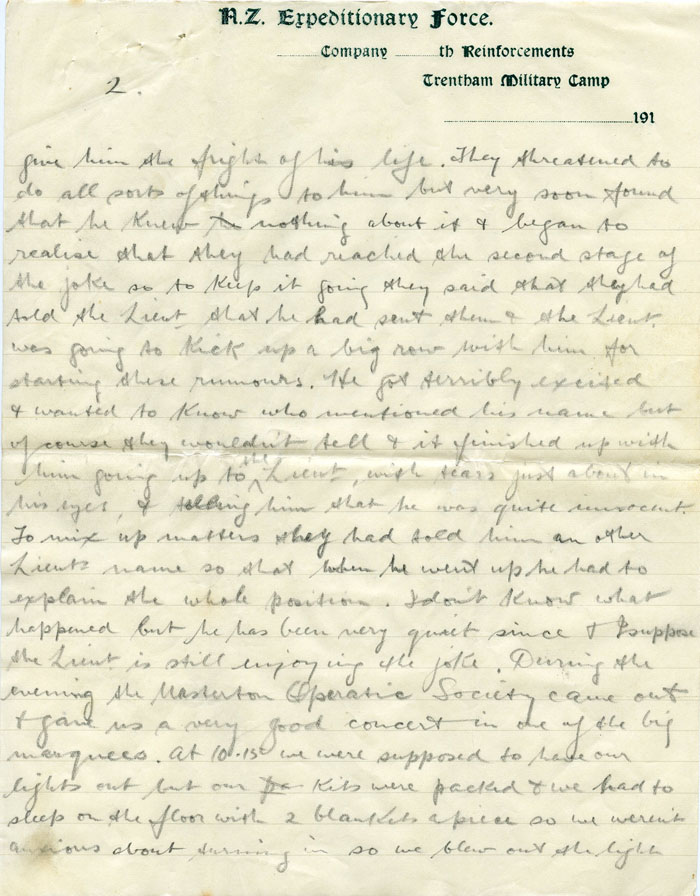 N.Z. Expeditionary Force.
Company th Reinforcements
Trentham Military Camp
191
2.
give him the fright of his life. They threatened to
do all sorts of things to him but very soon found
that he knew nothing about it & began to
realise that they had reached the second stage of
the joke so to keep it going they said that they had
told the Lieut. that he had sent them & the Lieut.
was going to kick up a big row with him for
starting these rumours. He got terribly excited
& wanted to know who mentioned his name but
of course they wouldn't tell & it finished up with
him going up to the Lieut, with tears just about in
his eyes, & telling him that he was quite innocent.
To mix up matters they had told him an other
Lieuts name so that when he went up he had to
explain the whole position. I don't know what
happened but he has been very quiet since & I suppose
the Lieut is still enjoying the joke. During the
evening the Masterton Operatic Society came out
& gave us a very good concert in one of the big
marquees. At 10.15 we were supposed to have our
lights out but our kits were packed & we had to
sleep on the floor with 2 blankets a piece so we weren't
anxious about turning in so we blew out the light